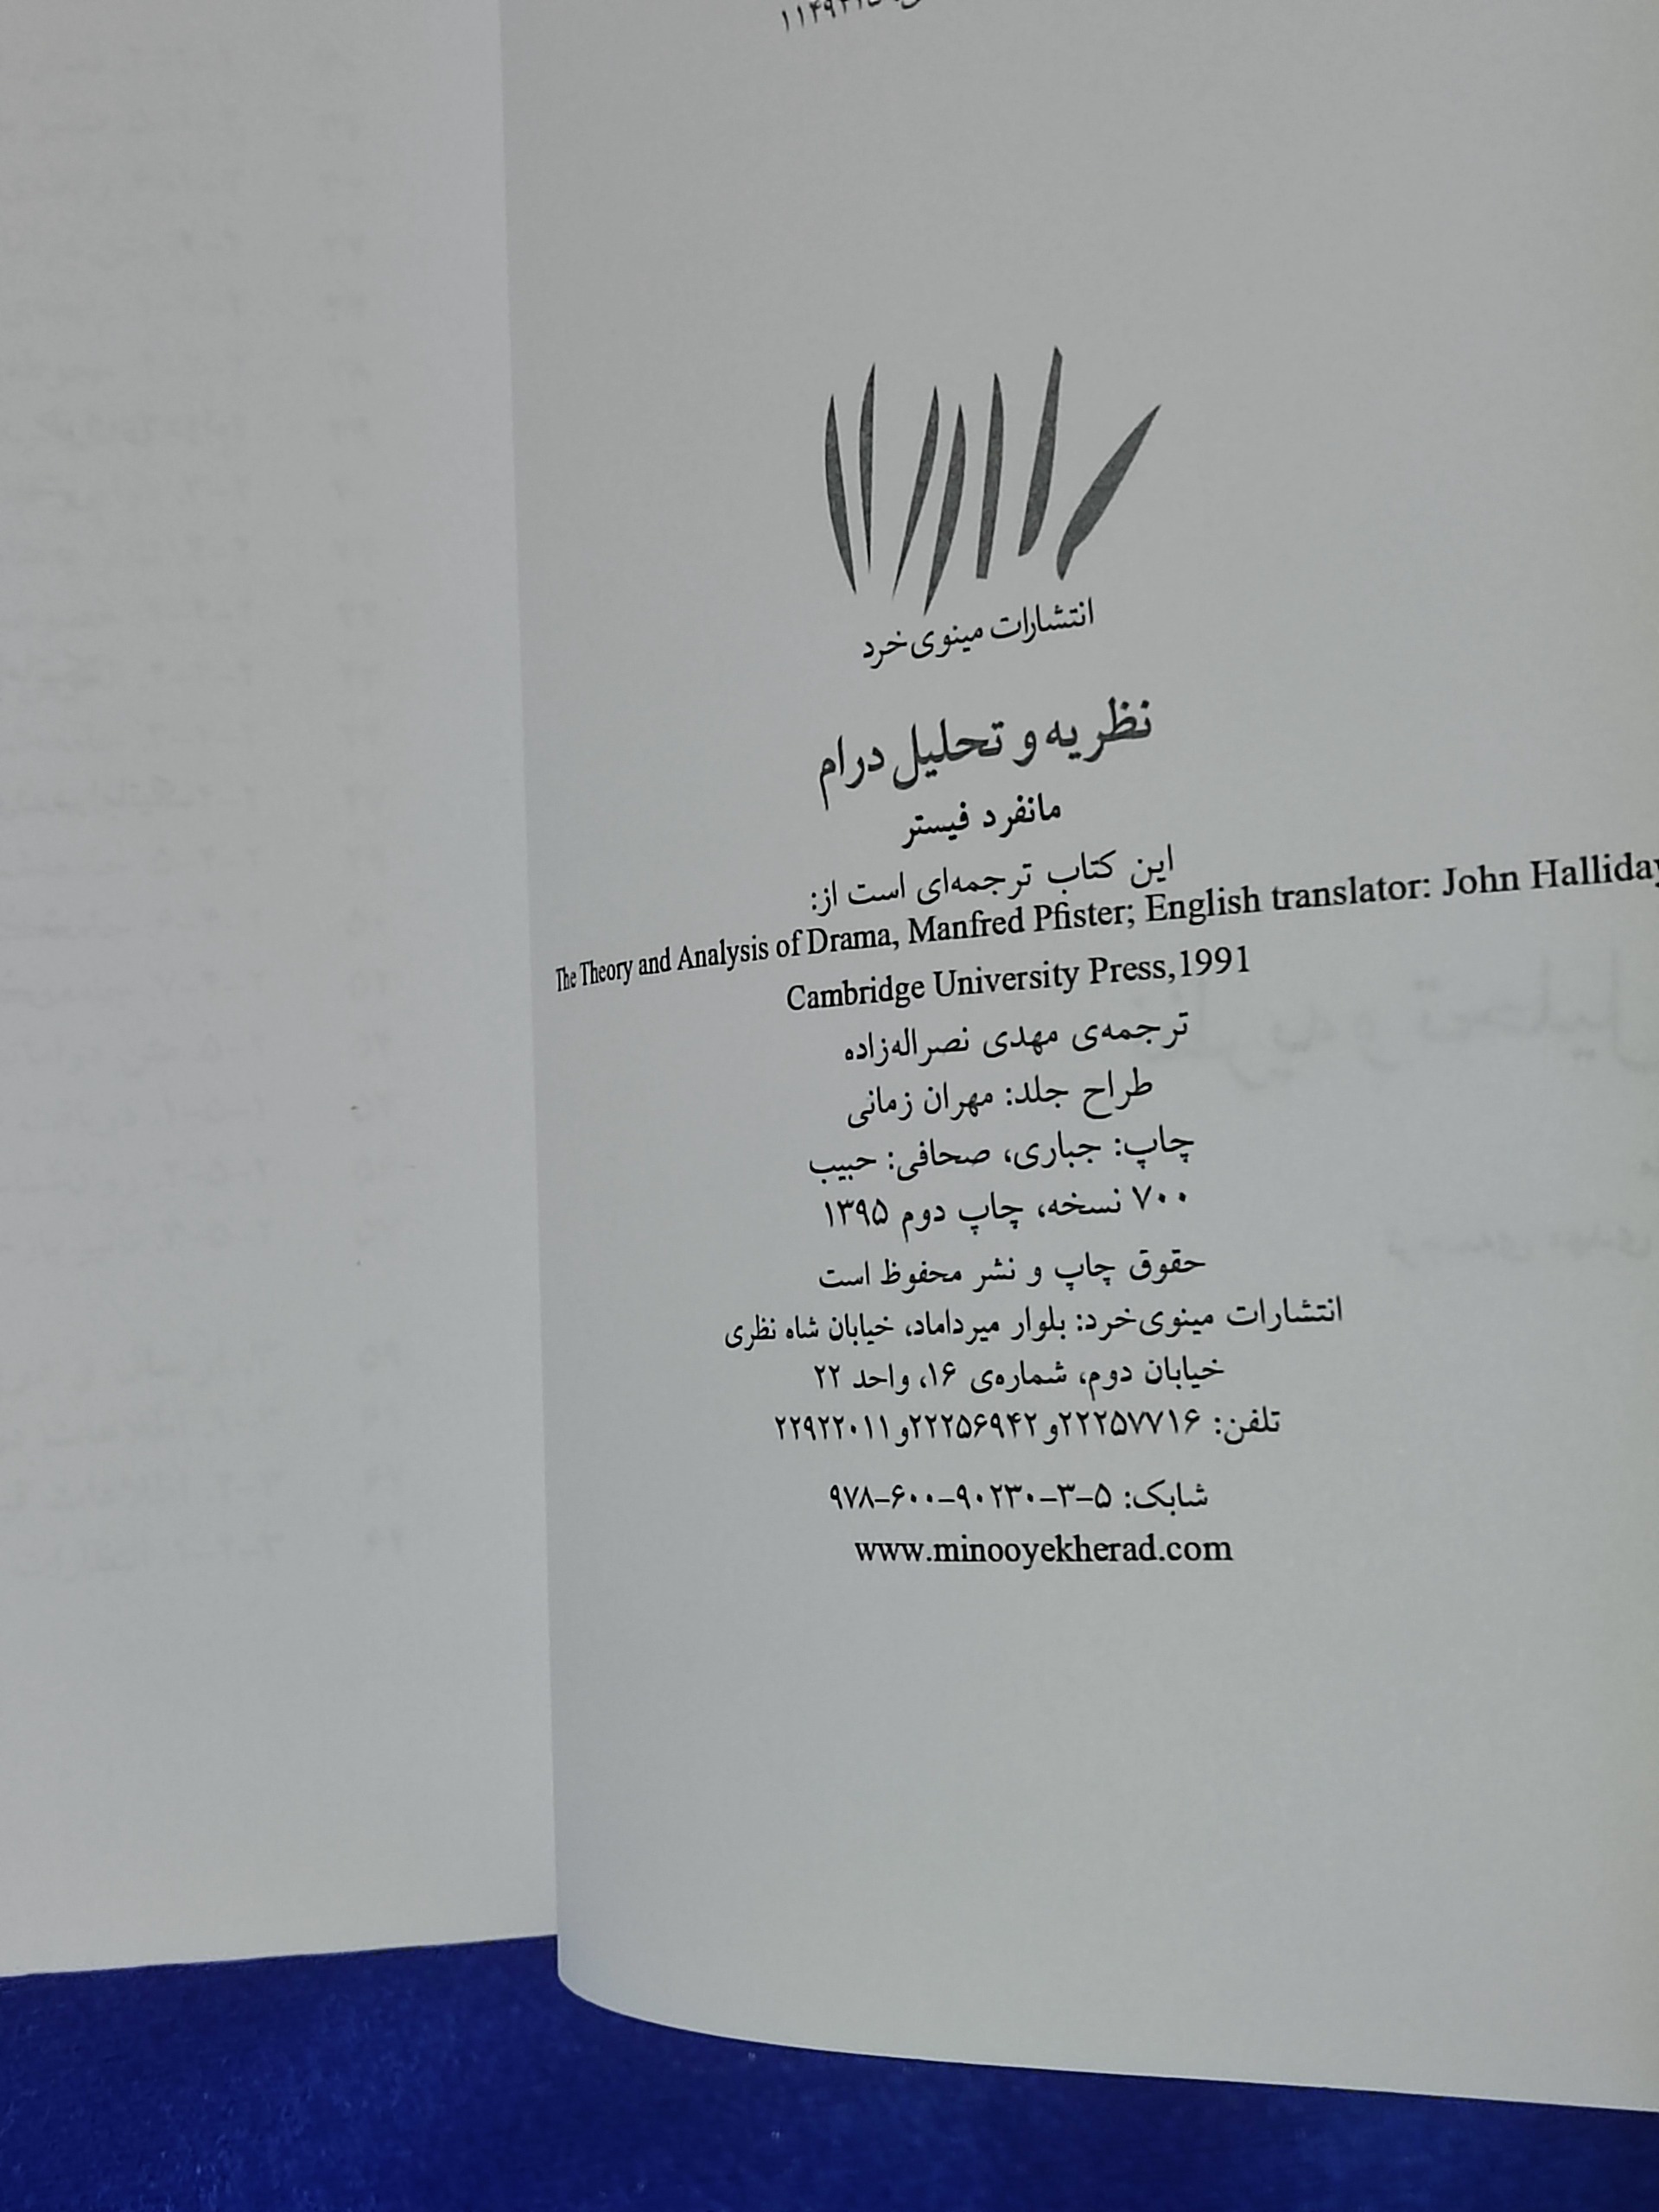 انتشارات مینوی‌خرد
نظریه و تحلیل درام
مانفرد فیستر
این کتاب ترجمه‌ای است از:
The Theory and Analysis of Drama, Manfred Pfister; English translator: John Halliday
Cambridge University Press,1991
ترجمه‌ی مهدی نصراله‌زاده
طراح جلد: مهران زمانی
چاپ: جباری، صحافی: حبیب
۷۰۰ نسخه، چاپ دوم ۱۳۹۵
حقوق چاپ و نشر محفوظ است
انتشارات مینوی‌خرد: بلوار میرداماد، خیابان شاه نظری
خیابان دوم، شماره‌ی ۱۶، واحد ۲۲
تلفن: ۲۲۲۵۷۷۱۶و۲۲۲۵۶۹۴۲و۲۲۹۲۲۰۱۱
شابک: ۵-۳-۹۰۲۳۰-۶۰۰-۹۷۸
www.minooyekherad.com